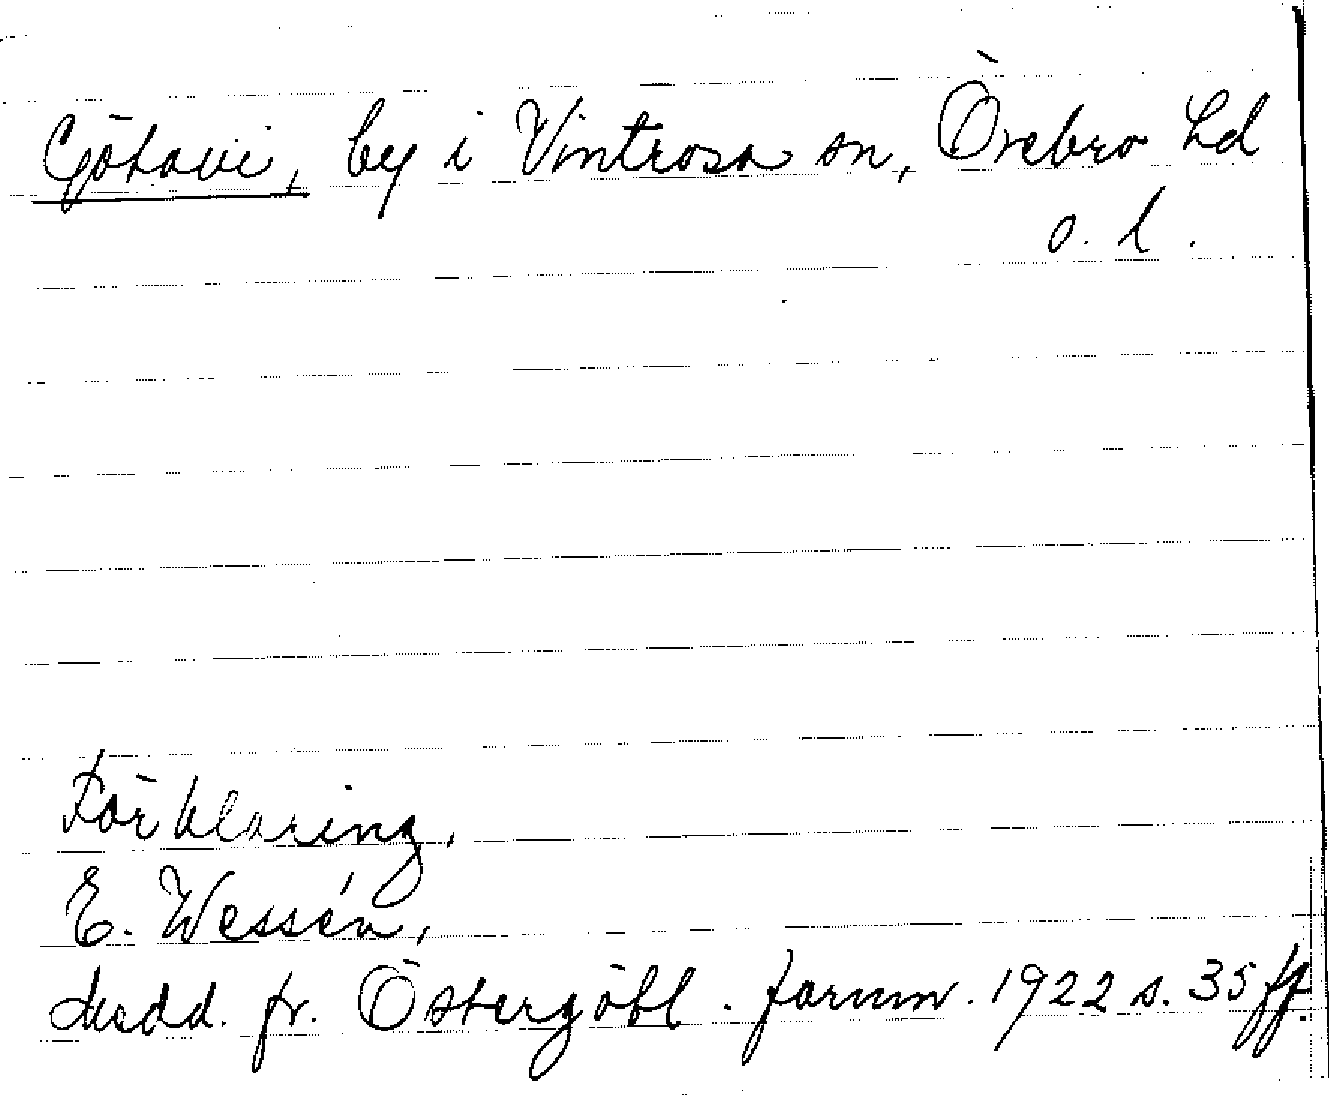 Götavi, by i Vintrosa sn, Örebro hd
o. l.
Förklaring.
E. Wessén,
Medd. fr. Östergötl. fornm. 1922 s. 35 ff.